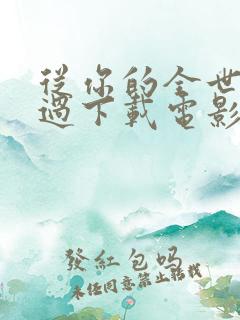 從你的全世
過下載電影
發紅包吗
未经同意禁止转载